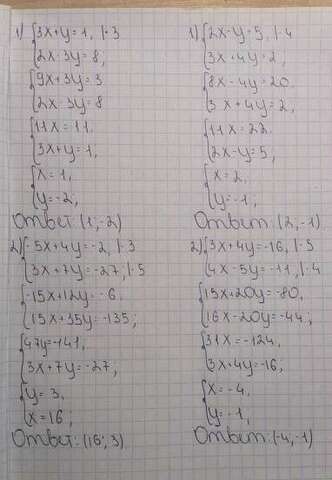 1) {3x+y=1, |·3
{2x-3y=8;
{9x+3y=3
{2x-3y=8
{11x=11.
{3x+y=1,
{x=1,
{y=-2;
Ответ: (1;-2)
2) {-5x+4y=-2, |·3
{3x+7y=-27; |·5
{-15x+12y=-6
{15x+35y=-135;
{47y=-141,
{3x+7y=-27,
{y=3,
{x=16;
Ответ: (16; 3).
1) {2x-y=5, |·4
{3x+4y=2;
{8x-4y=20
{3x+4y=2,
{11x=22.
{2x-y=5,
{x=2,
{y=-1;
Ответ: (2;-1)
2) {3x+4y=-16, |·5
{4x-5y=-11, |·4
{15x+20y=-80,
{16x-20y=-44;
{31x=-124,
{3x+4y=-16;
{x=-4,
{y=-1,
Ответ: (-4;-1)